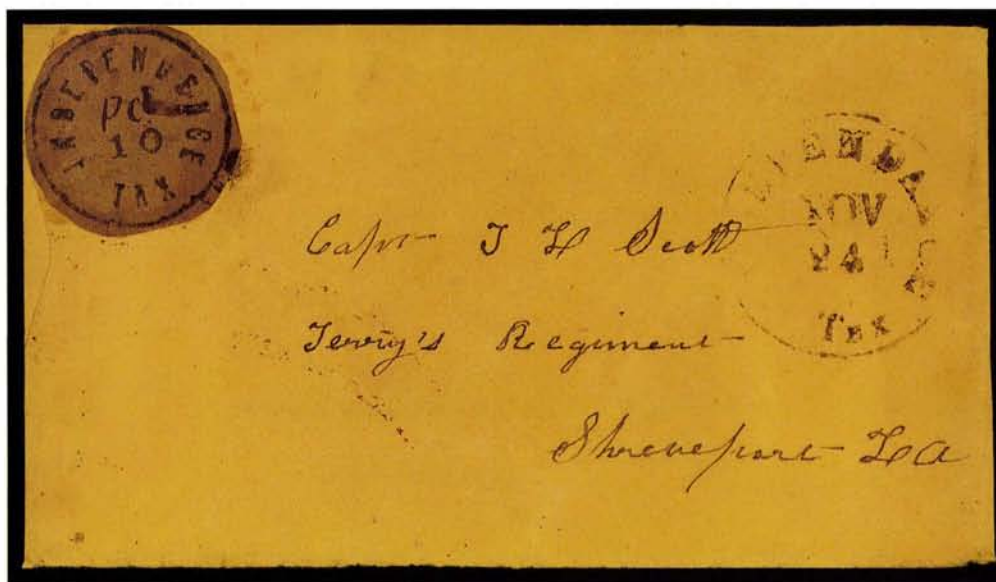 INDEPENDENCE
10
TEX
NOV
24
Tex
Capt T L Scott
Terry's Regiment
Shreveport La